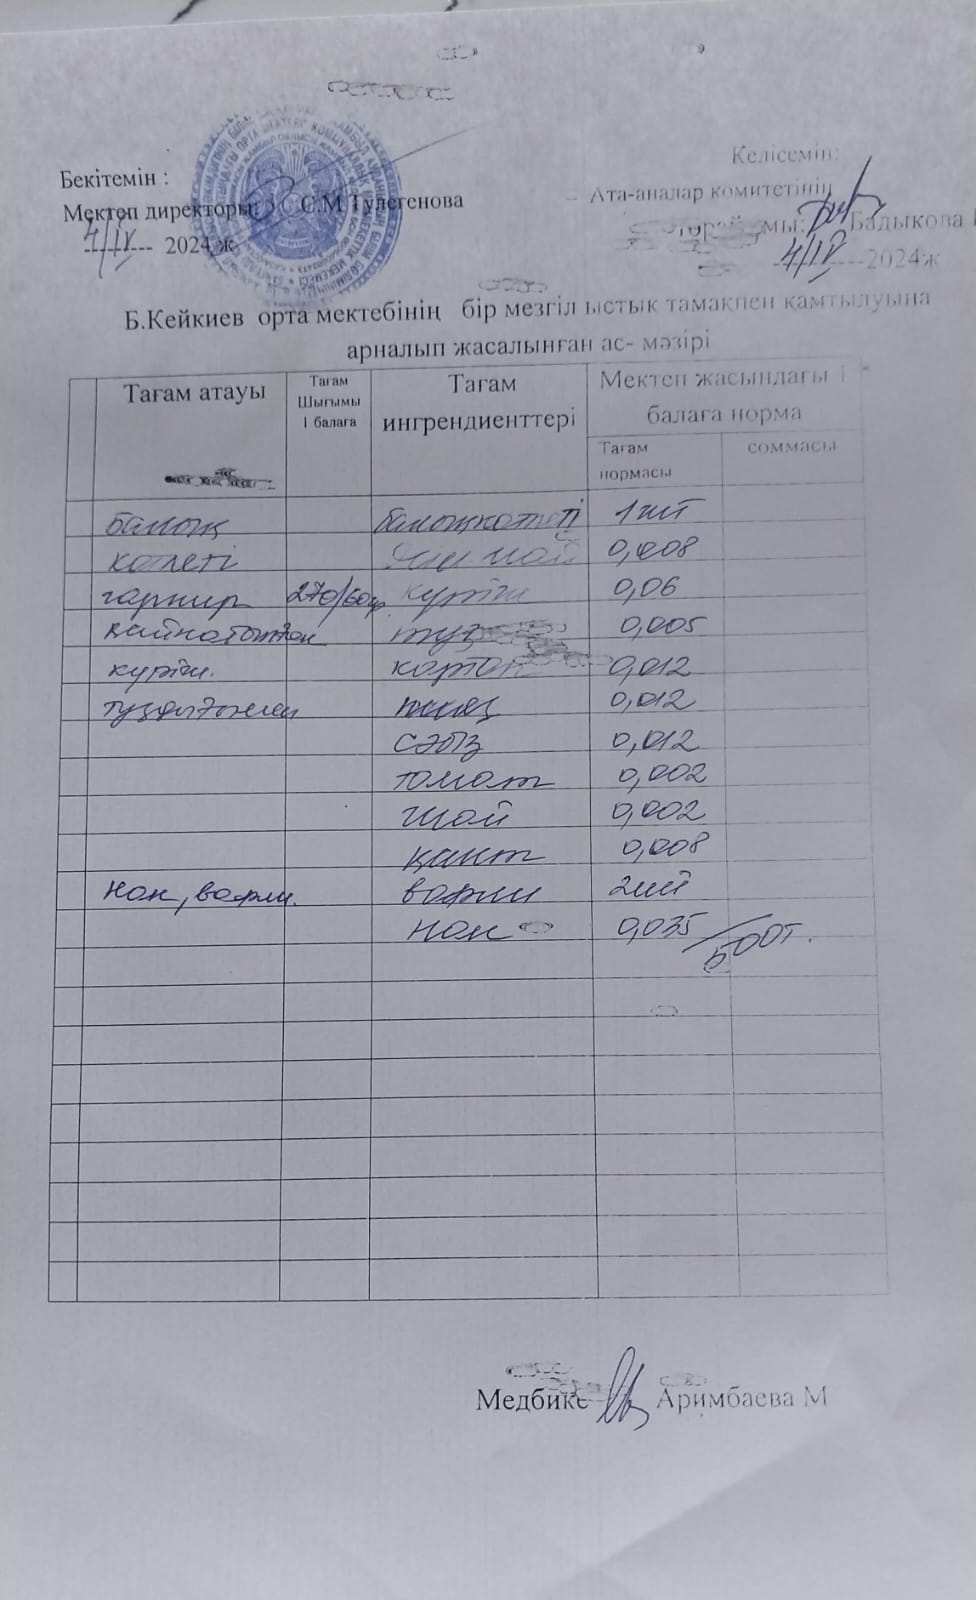 Бекітемін :
Келісемін:
Мектеп директоры: С.М Тулегенова
Ата-аналар комитетінің
мы: Бадыкова
4/IX 2024 ж
4/IX 2024ж
Б.Кейкиев орта мектебінің бір мезгіл ыстық тамақпен қамтылуына
арналып жасалынған ас- мәзірі
Тағам атауы
Тағам Шығымы 1 балаға
Тағам ингрендиенттері
Мектеп жасындағы 1 балаға норма
Тағам нормасы
соммасы
балық балықкотлеті 1шт
котлеті май 0,008
гарнир 270/60гр күріш 0,06
қайнатылған тұз 0,005
күріш. картоп 0,012
тұздықпен пияз 0,012
сәбіз 0,012
томат 0,002
шай 0,002
қант 0,008
нан, вафли. вафли 2шт
нан 0,035 / 500т.
Медбике Аримбаева М